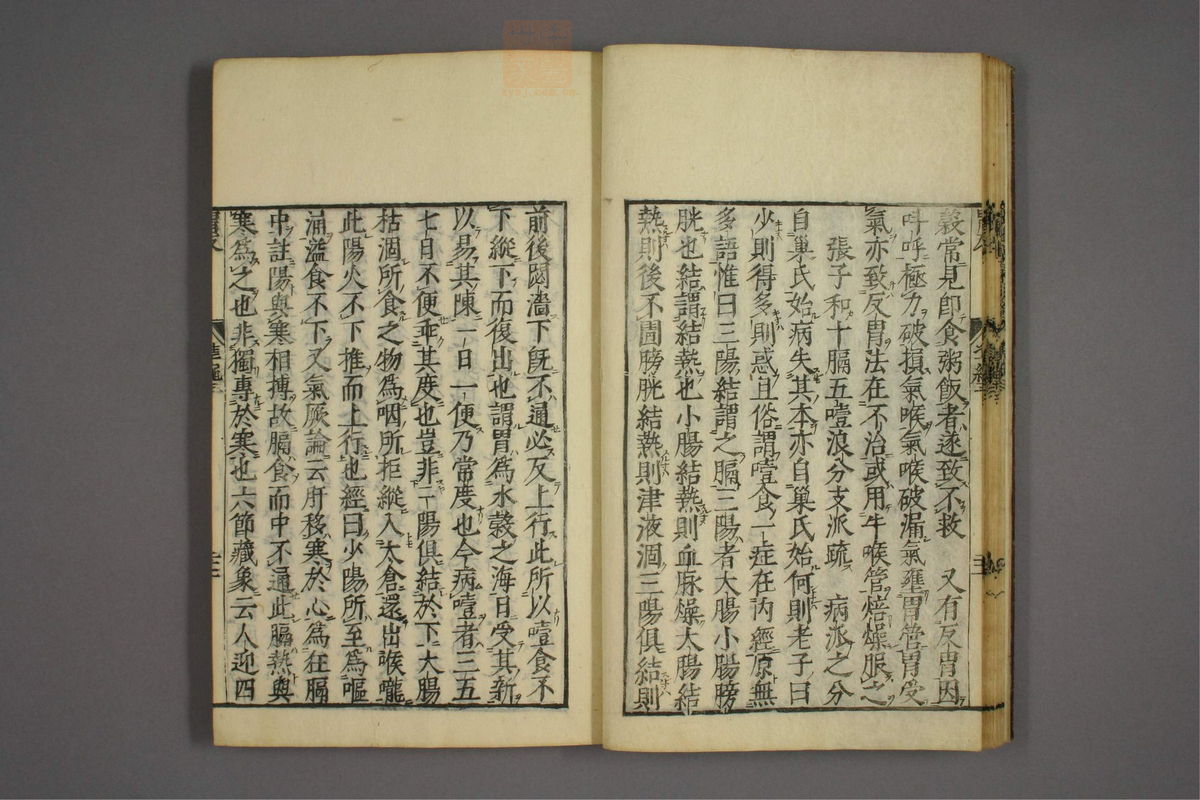 穀常見卽食粥飯者遂致不救　又有反胃因
叫呼極力破損氣喉氣喉破漏氣壅胃管胃受
氣亦致反胃法在不治或用牛喉管焙燥服之
張子和十膈五噎浪分支派疏　病派之分
自巢氏始病失其本亦自巢氏始何則老子曰
少則得多則惑且俗謂噎食一症在內經原無
多語惟曰三陽結謂之膈三陽者大腸小腸膀
胱也結謂結熱也小腸結熱則血脉燥大腸結
熱則後不圊膀胱結熱則津液涸三陽俱結則
前後閟濇下旣不通必反上行此所以噎食不
下縱下而復出也謂胃爲水穀之海日受其新
以易其陳一日一便乃常度也今病噎者三五
七日不便乖其度也豈非三陽俱結於下大腸
枯涸所食之物爲咽所拒縱入太倉還出喉嚨
此陽火不下推而上行也經曰少陽所至爲嘔
涌溢食不下又氣厥論云肝移寒於心爲狂膈
中註陽與寒相搏故膈食而中不通此膈熱與
寒爲之也非獨專於寒也六節藏象云人迎四